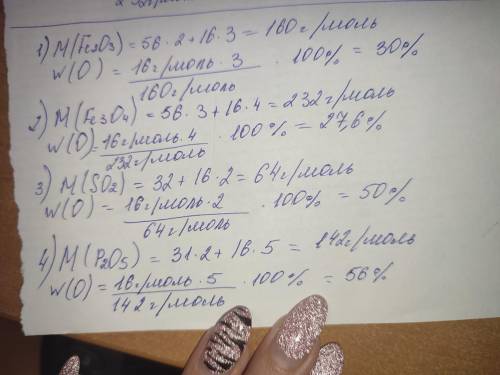 1) M(Fe2O3) = 56 · 2 + 16 · 3 = 160 г/моль
w(O) = 16 г/моль · 3 / 160 г/моль · 100% = 30%
2) M(Fe3O4) = 56 · 3 + 16 · 4 = 232 г/моль
w(O) = 16 г/моль · 4 / 232 г/моль · 100% = 27,6%
3) M(SO2) = 32 + 16 · 2 = 64 г/моль
w(O) = 16 г/моль · 2 / 64 г/моль · 100% = 50%
4) M(P2O5) = 31 · 2 + 16 · 5 = 142 г/моль
w(O) = 16 г/моль · 5 / 142 г/моль · 100% = 56%